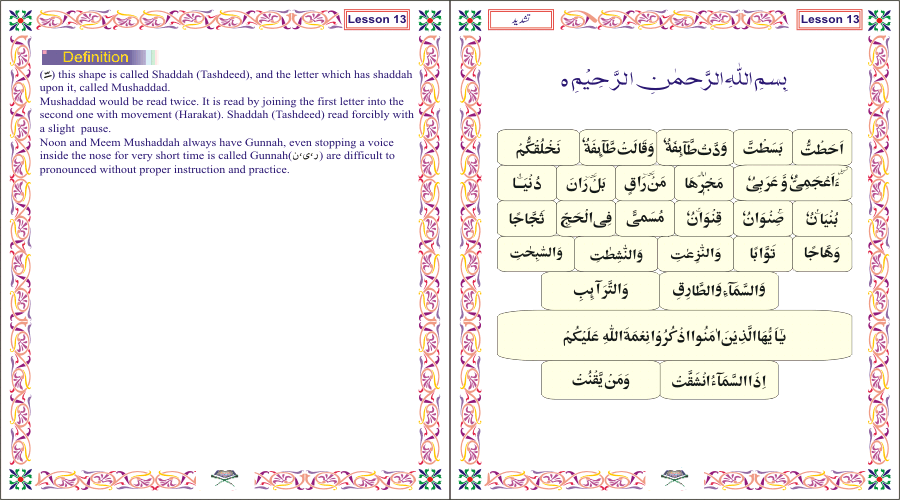 Lesson 13
Definition
(ـّ) this shape is called Shaddah (Tashdeed), and the letter which has shaddah
upon it, called Mushaddad.
Mushaddad would be read twice. It is read by joining the first letter into the
second one with movement (Harakat). Shaddah (Tashdeed) read forcibly with
a slight pause.
Noon and Meem Mushaddah always have Gunnah, even stopping a voice
inside the nose for very short time is called Gunnah(ر،ی،ن) are difficult to
pronounced without proper instruction and practice.
تشدید Lesson 13
بِسْمِ اللّٰهِ الرَّحْمٰنِ الرَّحِيْمِ ○
اَحَطْتُّ بَسَطْتَّ وَدَّتْ طَّآئِفَةٌ وَقَالَتْ طَّآئِفَةٌ نَخْلُقْكُّمْ
ءَاَعْجَمِىٌّ وَّ عَرَبِىٌّ مَجْرٖىهَا مَنْ رَاقٍ بَلْ رَانَ دُنْيَا
بُنْيَانٌ صِنْوَانٌ قِنْوَانٌ مُسَمًّى فِى الْحَجِّ ثَجَّاجًا
وَهَّاجًا تَوَّابًا وَالنّٰزِعٰتِ وَالنّٰشِطٰتِ وَالسّٰبِحٰتِ
وَالسَّمَآءِ وَالطَّارِقِ وَالتَّرَآئِبِ
يٰٓاَيُّهَا الَّذِيْنَ اٰمَنُوا اذْكُرُوْا نِعْمَةَ اللّٰهِ عَلَيْكُمْ
اِذَا السَّمَآءُ انْشَقَّتْ وَمَنْ يَّقْنُتْ